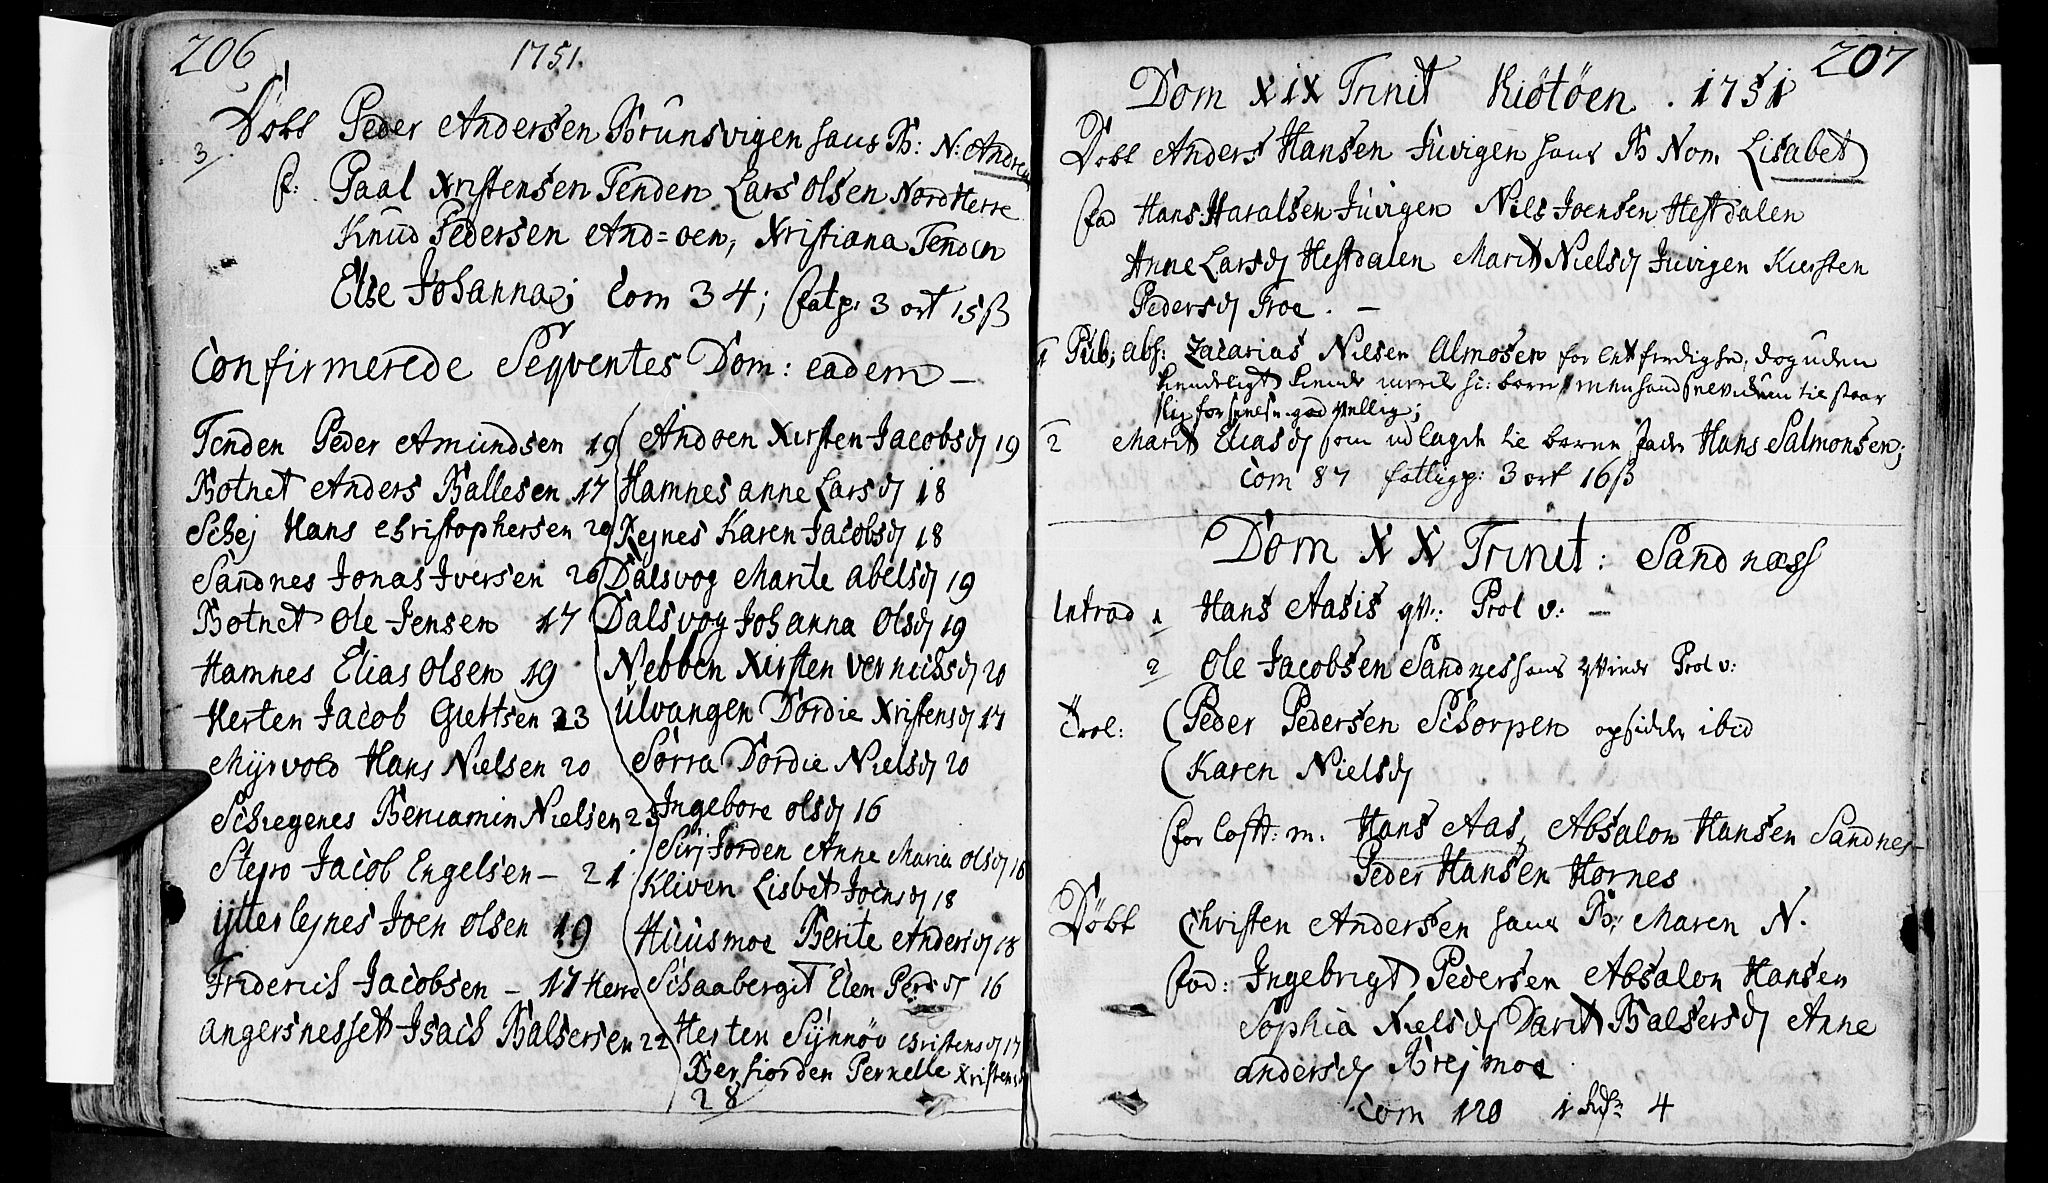 206
1751.
3 Döbt Peder Andersen Brunsvigen hans B: N: Andreas
f: Paal Xristensen Tenden Lars Olsen Nordherre
Knud Pedersen And=öen, Xristiana Tenden
Else Johanna; Com 34; fatp: 3 ort 15 ß
Confirmerede Seqventes Dom: eadem —
Tenden Peder Amundsen 19
Botnet Anders Ballesen 17
Schej Hans Christophersen 20
Sandnes Jonas Iversen 20
Botnet Ole Jensen 17
Hamnes Elias Olsen 19
Herten Jacob Giertsen 23
Mijsvold Hans Nielsen 20
Schiegenes Beniamin Nielsen 23
Stepro Jacob Engelsen — 21
Ytterlejnes Joen Olsen 19
Friderich Jacobsen — 17 Herre
Angersnesset Isach Balsersen 22
Andöen Kirsten Jacobsd 19
Hamnes Anne Larsd 18
Rejnes Karen Jacobsd 18
Dalsvog Marite Abelsd 19
Dalsvog Johanna Olsd 19
Nebben Kirsten Vernichsd 20
Ulvangen Dordie Xristensd 17
Sörra Dordie Nielsd 20
Ingebore Olsd 16
Sirjorden Anne Maria Olsd 18
Kliven Lisbet Joensd 18
Huusmoe Berite Andersd 18
Schaabergit Elen Persd 16
Herten Synnöv Christensd 17
Berfiorden Pernelle Xristensd
28
207
Dom XIX Trinit Kiötöen. 1751
Döbt Anders Hansen Juvigen hans B Nom. Lisabet
fad Hans Haralsen Juvigen Niels Joensen Hestdalen
Anne Larsd Hestdalen Marit Nielsd Juvigen Kiersten
Pedersd Troe. —
1 Pub: abs: Zacarias Nilsen Almosen for letferdighed, dog uden
hand tilstaar
god villig;
2 Marit Eliasd som udlagde til barne fader Hans Salmonsen;
Com 87 fattigp: 3 ort 16 ß
Dom XX Trinit: Sandnæss
Introd 1 Hans Aasis qv: Prol v: —
2 Ole Jacobsen Sandnes hans qvinde Prol v:
Trol: Peder Pedersen Schorpen opsidder ibid
Karen Nielsd
for loft: m. Hans Aas, Absalon Hansen Sandnes—
Peder Hansen Hornes
Döbt Christen Andersen hans B: Maren N.
fad: Ingebrigt Pedersen Absalon Hansen
Sophia Nielsd Darit Balsersd Anne
Andersd Brejmoe
Com 120 1 4